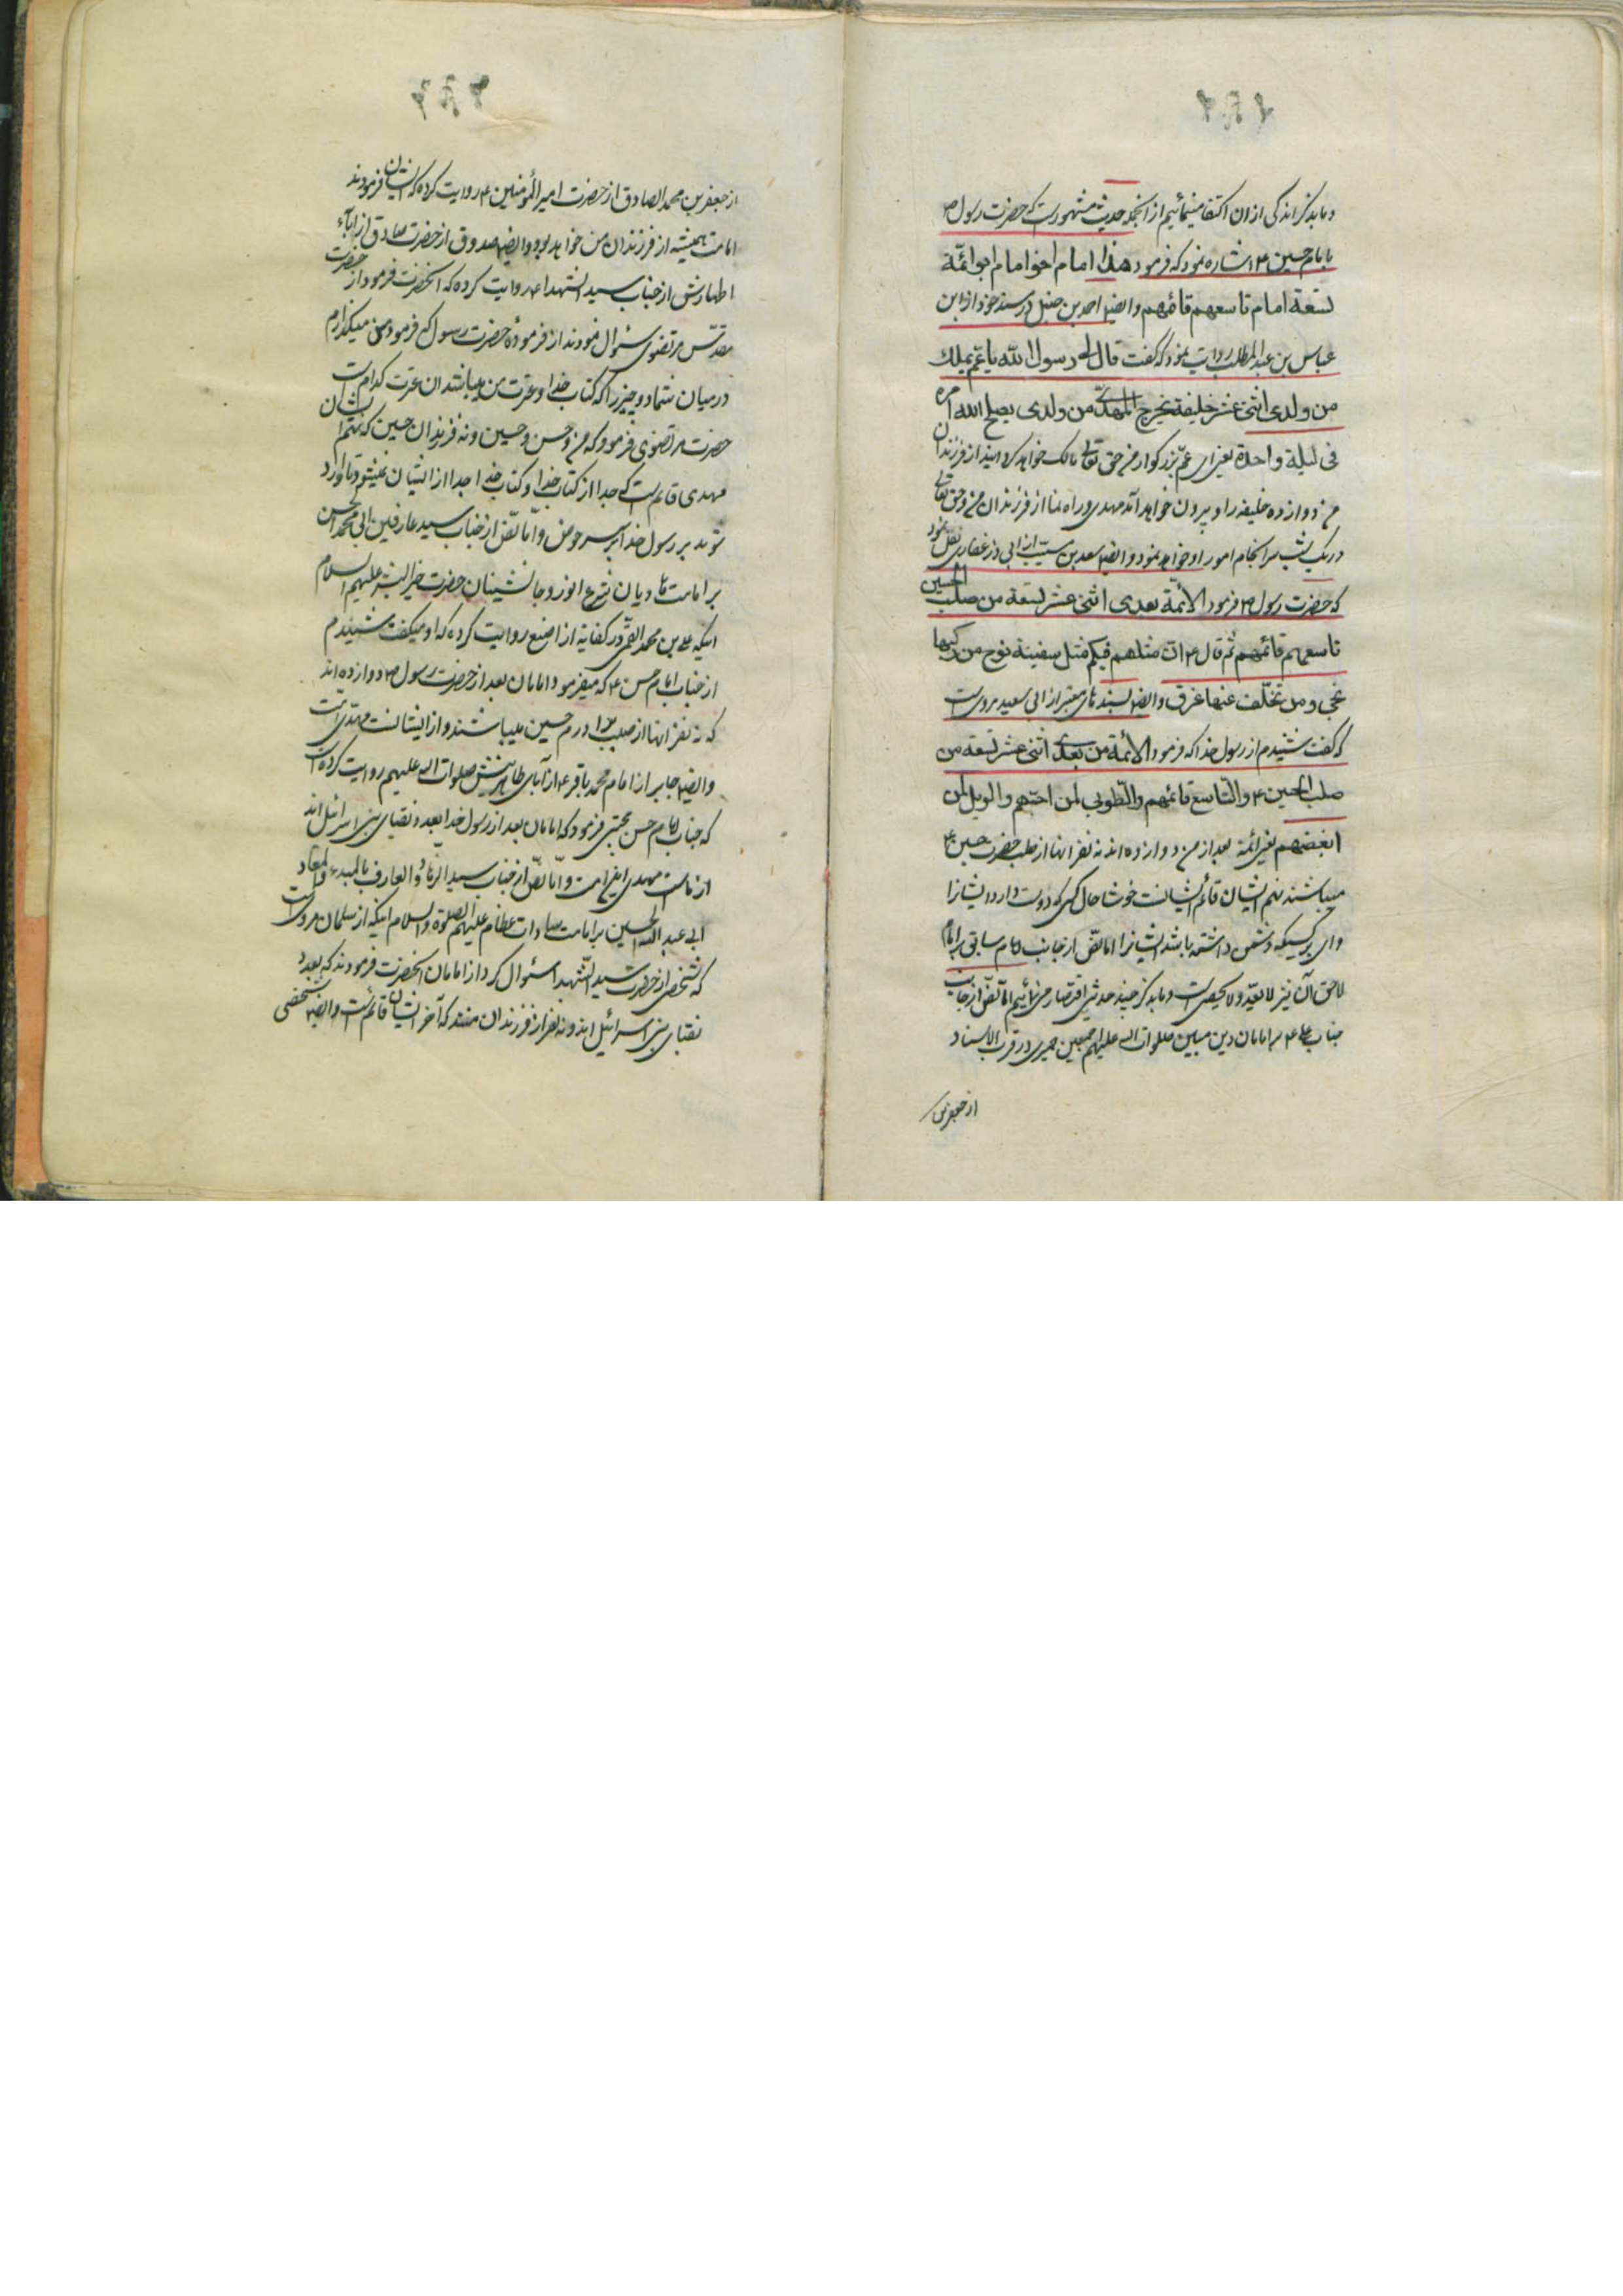 و ما بذکر اندکی از ان اکتفا مینمائیم از انجمله حدیث مشهورست که حضرت رسول ص
بامام حسین ع اشاره نمود که فرمود هذا امام اخو امام ابو ائمّة
تسعة امام تاسعهم قائمهم و ایضا احمد بن حنبل در مسند خود از ابن
عباس بن عبد المطلب روایت نمود که گفت قال لی رسول الله یا عمّ یملك
من ولدی اثنی عشر خلیفة یخرج المهدیّ من ولدی یصلح الله امره
فی لیلة واحدة یعنی ای عمّ بزرگوار من حق تعالی مالک خواهد گردانید از فرزندان
من دوازده خلیفه را و بیرون خواهد آمد مهدی و راه نما از فرزندان من و حق تعالی
در یک شب سرانجام امور او خواهد نمود و ایضا سعد بن مسیّب از ابی ذر غفاری نقل نمود
که حضرت رسول ص فرمود الائمّة بعدی اثنی عشر تسعة من صلب الحسین
تاسعهم قائمهم ثم قال ع انّ مثلهم فیکم مثل سفینة نوح من رکبها
نجی و من تخلّف عنها غرق و ایضا بسندهای معتبر از ابی سعید مرویست
که گفت شنیدم از رسول خدا که فرمود الائمة من بعدی اثنی عشر تسعة من
صلب الحسین ع والتاسع قائمهم والطّوبی لمن احبّهم والویل لمن
ابغضهم یعنی ائمة بعد از من دوازده اند نه نفر انها از صلب حضرت حسین ع
میباشند نهم ایشان قائم ایشانست خوشا حال کسی که دوست دارد ایشانرا
وای بر کسیکه دشمن داشته باشد ایشانرا اما نصّ از جانب امام سابق بر امام
لاحق آن نیز لا یعدّ و لا یحصی است و ما بذکر چند حدیثی اقتصار می نمائیم امّا نصّ از جانب
جناب علی ع بر امامان دین مبین صلوات الله علیهم اجمعین حمیری در قرب الاسناد
از جعفر بن
از جعفر بن محمد الصادق از حضرت امیر المؤمنین ع روایت کرده که ایشان فرمودند
امامت همیشه از فرزندان من خواهد بود و ایضا صدوق از حضرت صادق از آباء
اطهارش از جناب سید الشهدا ع روایت کرده که انحضرت فرمود از حضرت
مقدّس مرتضوی سئوال نمودند از فرمودۀ حضرت رسول که فرمود من میگذارم
در میان شما دو چیز را که کتاب خدا و عترت من میباشند ان عترت کدام است
حضرت مرتضوی فرمود که من و حسن و حسین و نه فرزندان حسین که نهم ایشان
مهدی قائم است که جدا از کتاب خدا و کتاب خدا جدا از ایشان نمیشود تا وارد
شوند بر رسول خدا بر سر حوض و امّا نصّ از جناب سید عارفین ابی محمد الحسن
بر امامت هادیان شرع انور و جانشینان حضرت خیر البشر علیهم السلام
اینکه علی بن محمد القمّی در کفایة از اصبغ روایت کرده که او میگفت شنیدم
از جناب امام حسن ع که میفرمود امامان بعد از حضرت رسول ص دوازده اند
که نه نفر انها از صلب برادرم حسین میباشند و از ایشانست مهدی امّت
و ایضا جابر از امام محمد باقر ع از آبای طاهرینش صلوات الله علیهم روایت کرده است
که جناب امام حسن مجتبی فرمود که امامان بعد از رسول خدا بعدد نقبای بنی اسرائیل اند
از ماست مهدی این امت و امّا نصّ از جناب سید الزهاد و العارف بالمبدء و المعاد
ابی عبد الله الحسین بر امامت سادات عظام علیهم الصلوة و السلام اینکه از سلمان مرویست
که شخصی از حضرت سید الشهدا سئوال کرد از امامان انحضرت فرمودند که بعدد
نقبای بنی اسرائیل اند و نه نفر از فرزندان منند که آخر ایشان قائمست و ایضا شخصی